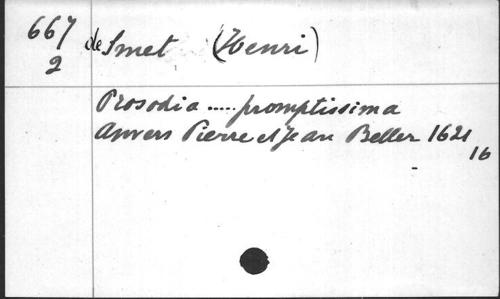 667
2
de Smet (Henri)
Prosodia ..... promptissima
Anvers Pierre et Jean Beller 1621
16